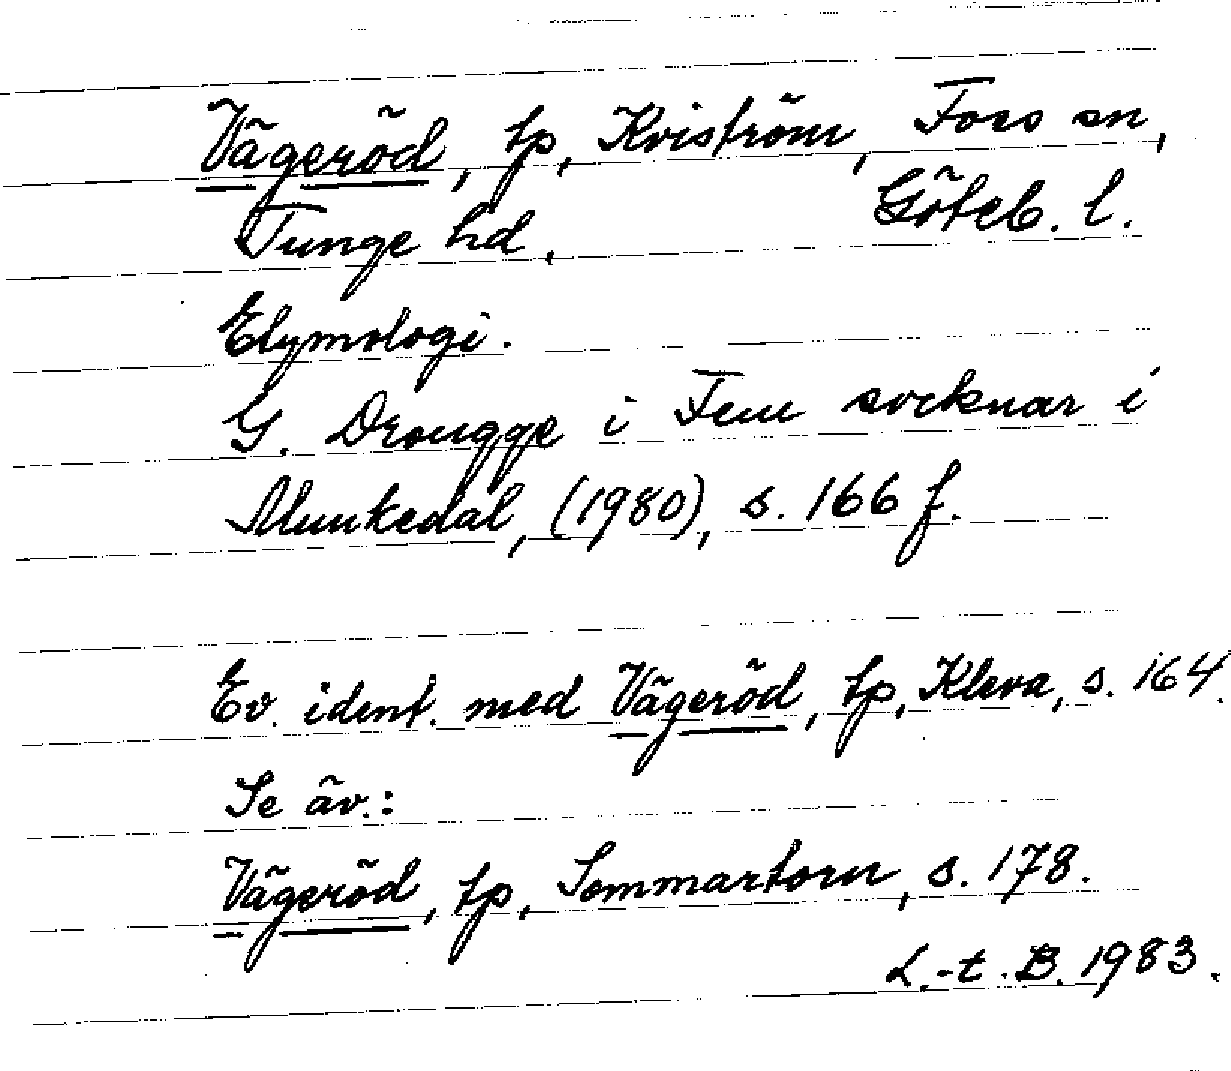 Vägeröd, tp, Kviström, Foss sn,
Tunge hd, Göteb. l.
Etymologi.
G. Drougge i Fem socknar i
Munkedal, (1980), s. 166 f.
Ev. ident. med Vägeröd, tp, Kleva, s. 164.
Se äv.:
Vägeröd, tp, Sommartorn, s. 178.
L.-t. B. 1983.